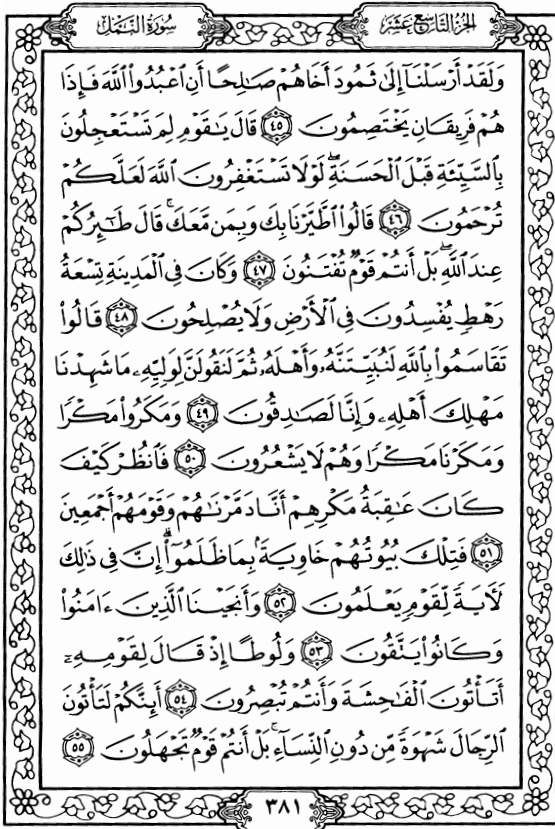 سُورَةُ النَّمْلِ الجُزْءُ التَّاسِعَ عَشَرَ
وَلَقَدْ أَرْسَلْنَآ إِلَىٰ ثَمُودَ أَخَاهُمْ صَـٰلِحًا أَنِ ٱعْبُدُوا۟ ٱللَّهَ فَإِذَا
هُمْ فَرِيقَانِ يَخْتَصِمُونَ ٤٥ قَالَ يَـٰقَوْمِ لِمَ تَسْتَعْجِلُونَ
بِٱلسَّيِّئَةِ قَبْلَ ٱلْحَسَنَةِ ۖ لَوْلَا تَسْتَغْفِرُونَ ٱللَّهَ لَعَلَّكُمْ
تُرْحَمُونَ ٤٦ قَالُوا۟ ٱطَّيَّرْنَا بِكَ وَبِمَن مَّعَكَ ۚ قَالَ طَـٰٓئِرُكُمْ
عِندَ ٱللَّهِ ۖ بَلْ أَنتُمْ قَوْمٌ تُفْتَنُونَ ٤٧ وَكَانَ فِى ٱلْمَدِينَةِ تِسْعَةُ
رَهْطٍ يُفْسِدُونَ فِى ٱلْأَرْضِ وَلَا يُصْلِحُونَ ٤٨ قَالُوا۟
تَقَاسَمُوا۟ بِٱللَّهِ لَنُبَيِّتَنَّهُۥ وَأَهْلَهُۥ ثُمَّ لَنَقُولَنَّ لِوَلِيِّهِۦ مَا شَهِدْنَا
مَهْلِكَ أَهْلِهِۦ وَإِنَّا لَصَـٰدِقُونَ ٤٩ وَمَكَرُوا۟ مَكْرًا
وَمَكَرْنَا مَكْرًا وَهُمْ لَا يَشْعُرُونَ ٥٠ فَٱنظُرْ كَيْفَ
كَانَ عَـٰقِبَةُ مَكْرِهِمْ أَنَّا دَمَّرْنَـٰهُمْ وَقَوْمَهُمْ أَجْمَعِينَ
٥١ فَتِلْكَ بُيُوتُهُمْ خَاوِيَةًۢ بِمَا ظَلَمُوٓا۟ ۗ إِنَّ فِى ذَٰلِكَ
لَـَٔايَةً لِّقَوْمٍ يَعْلَمُونَ ٥٢ وَأَنجَيْنَا ٱلَّذِينَ ءَامَنُوا۟
وَكَانُوا۟ يَتَّقُونَ ٥٣ وَلُوطًا إِذْ قَالَ لِقَوْمِهِۦٓ
أَتَأْتُونَ ٱلْفَـٰحِشَةَ وَأَنتُمْ تُبْصِرُونَ ٥٤ أَئِنَّكُمْ لَتَأْتُونَ
ٱلرِّجَالَ شَهْوَةً مِّن دُونِ ٱلنِّسَآءِ ۚ بَلْ أَنتُمْ قَوْمٌ تَجْهَلُونَ ٥٥
٣٨١